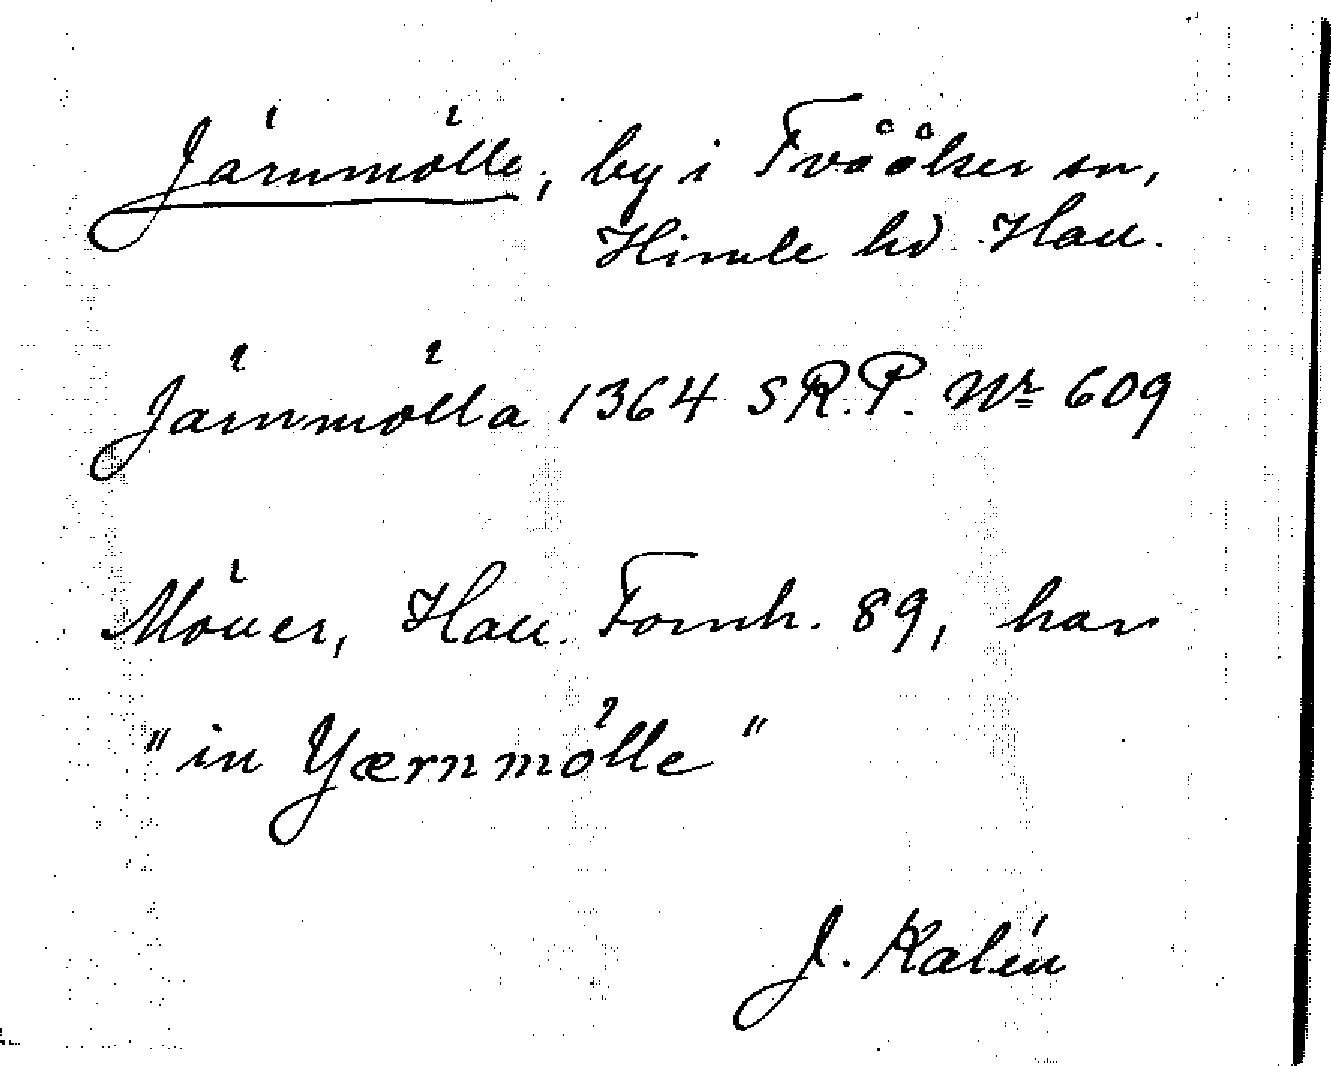 Järnmölle, by i Tvååker sn,
Himle hd Hall.
Järnmölla 1364 SR.P. Nr 609
Möller, Hall. Fornh. 89, har
"in Yærnmölle"
J. Kalén